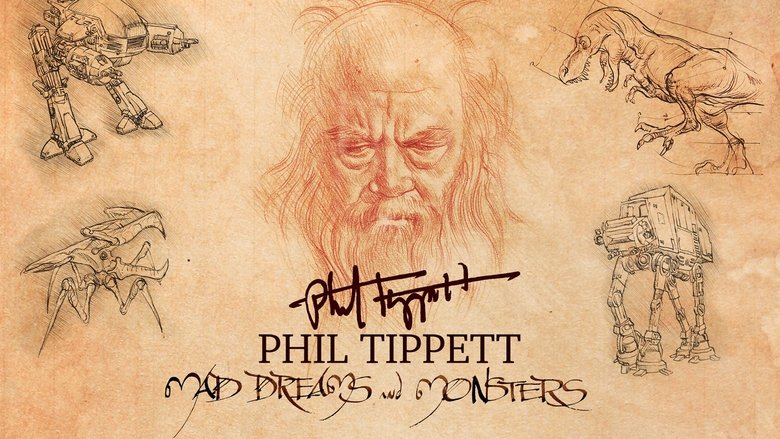 Phil Tippett
PHIL TIPPETT
MAD DREAMS and MONSTERS